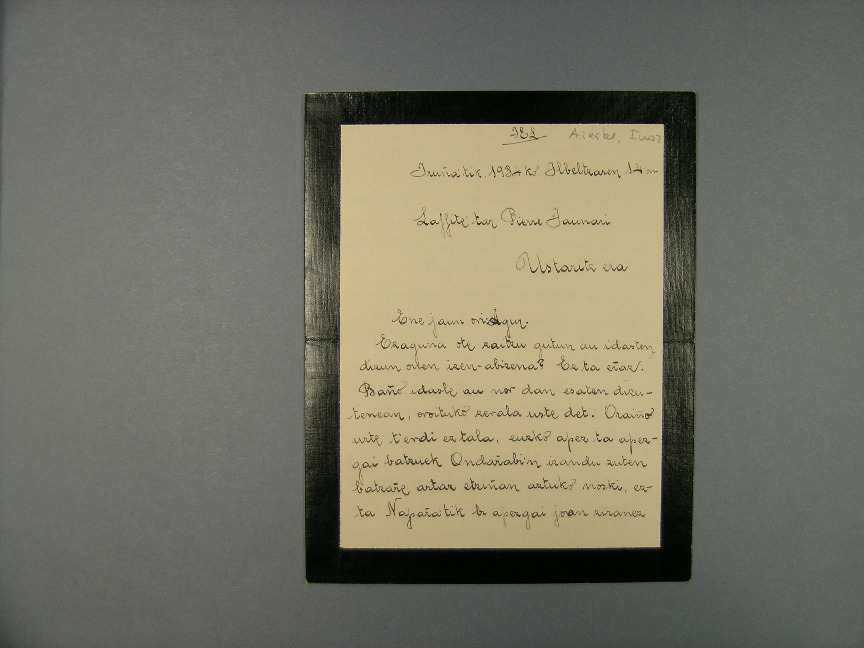 JEL Aierbe,
Iruña'tik, 1934-ko Ilbeltzaren 14-an
Laffite'tar Pierre Jaunari
Ustaritz'era
Ene jaun ori: Agur.
Ezaguna ote zaitzu gutun au idasten
dizun oŕen izen-abizena? Ez ta eŕaz.
Bañó idazle au nor dan esaten dizu-
tenean, oroituko zerala uste det. Oraiño
urte t'erdi eztala, euzko apez ta apez-
gai batzuek Ondaŕabi'n izandu zuten
batzaŕe artaz etziñan aztuko noski, ez-
ta Napaŕa'tik bi apezgai joan ziranez